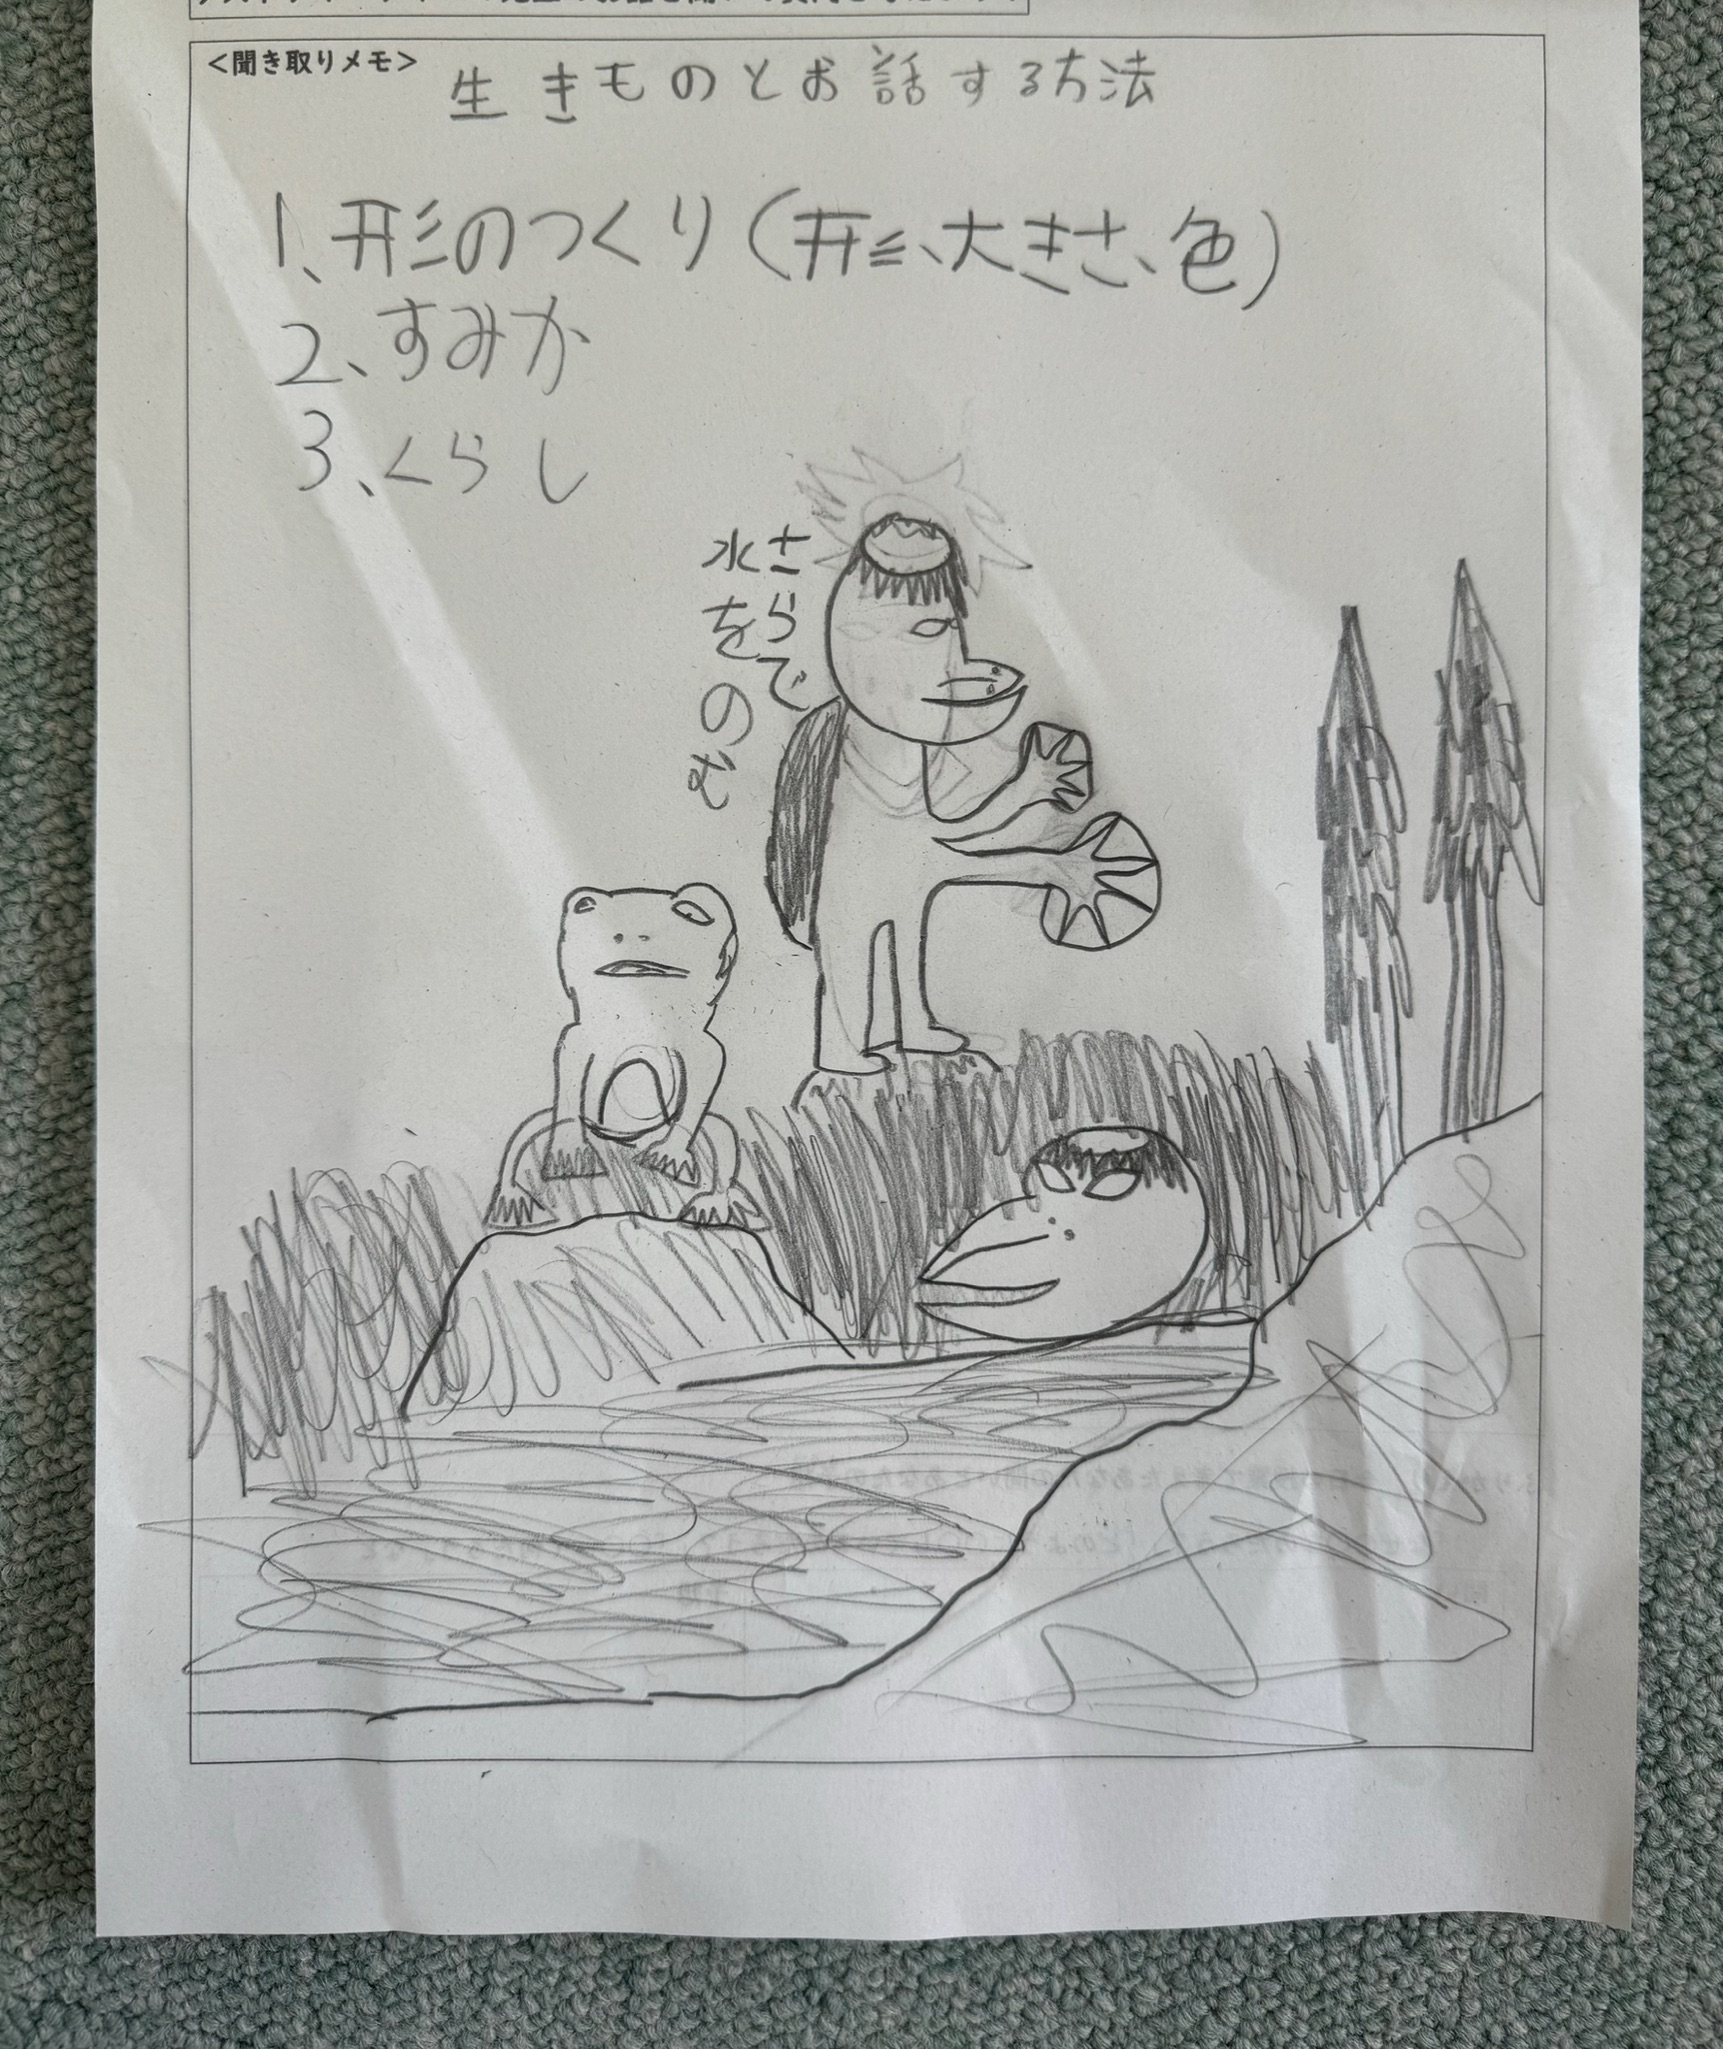 <聞き取りメモ>
生きものとお話する方法
1、形のつくり(形、大きさ、色)
2、すみか
3、くらし
さらで
水をのむ